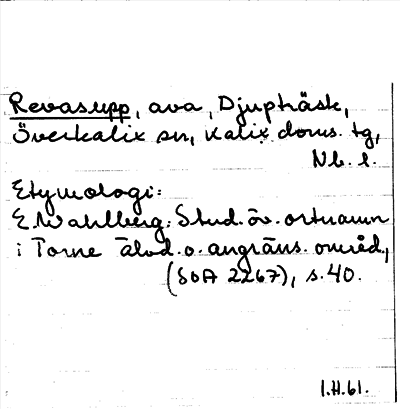 Revasupp, ava, Djupträsk,
Överkalix sn, Kalix doms. tg,
Nb. l.
Etymologi:
E. Wahlberg: Stud. öv. ortnamn
i Torne älvd. o. angräns. områd,
(SOA 2267), s. 40.
I.H. 61.